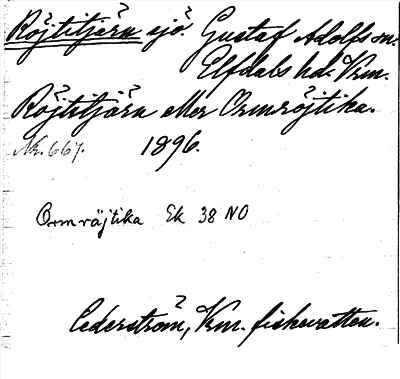 Röjtitjärn sjö. Gustaf Adolfs sn.
Elfdals hd. Vrm.
Röjtitjärn eller Ormröjtika.
Nr. 667. 1896.
Ormröjtika Ek 38 NO
Cederström, Vrm. fiskevatten.